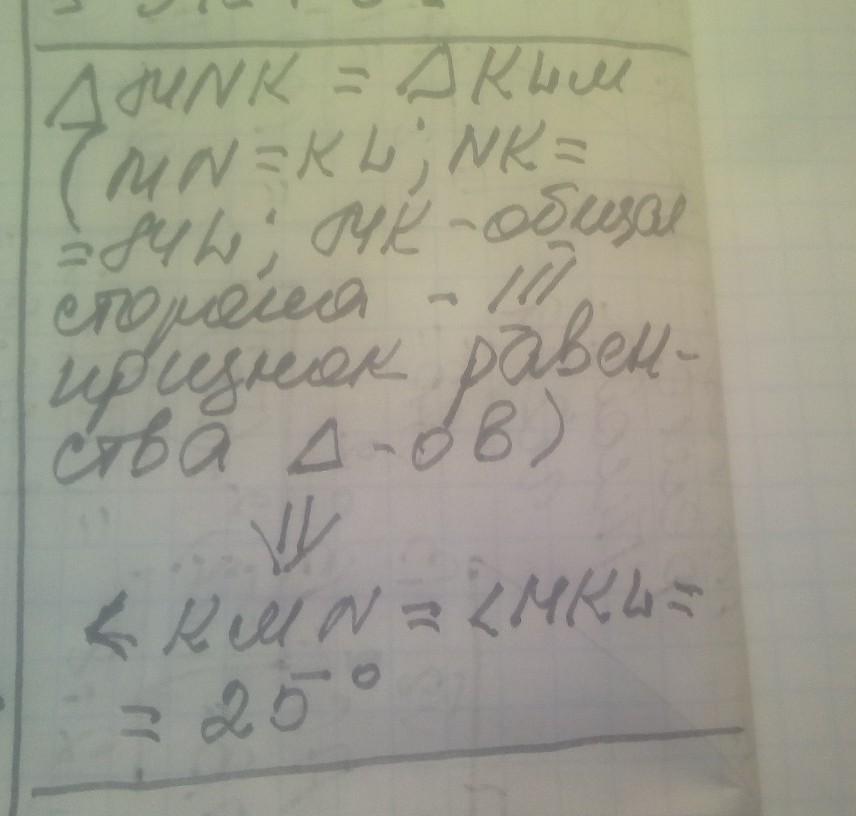 Δ MNK = Δ KLM
(MN = KL; NK =
= ML; MK - общая
сторона - III
признак равен-
ства Δ-ов)
⇓
< KMN = < MKL =
= 25°